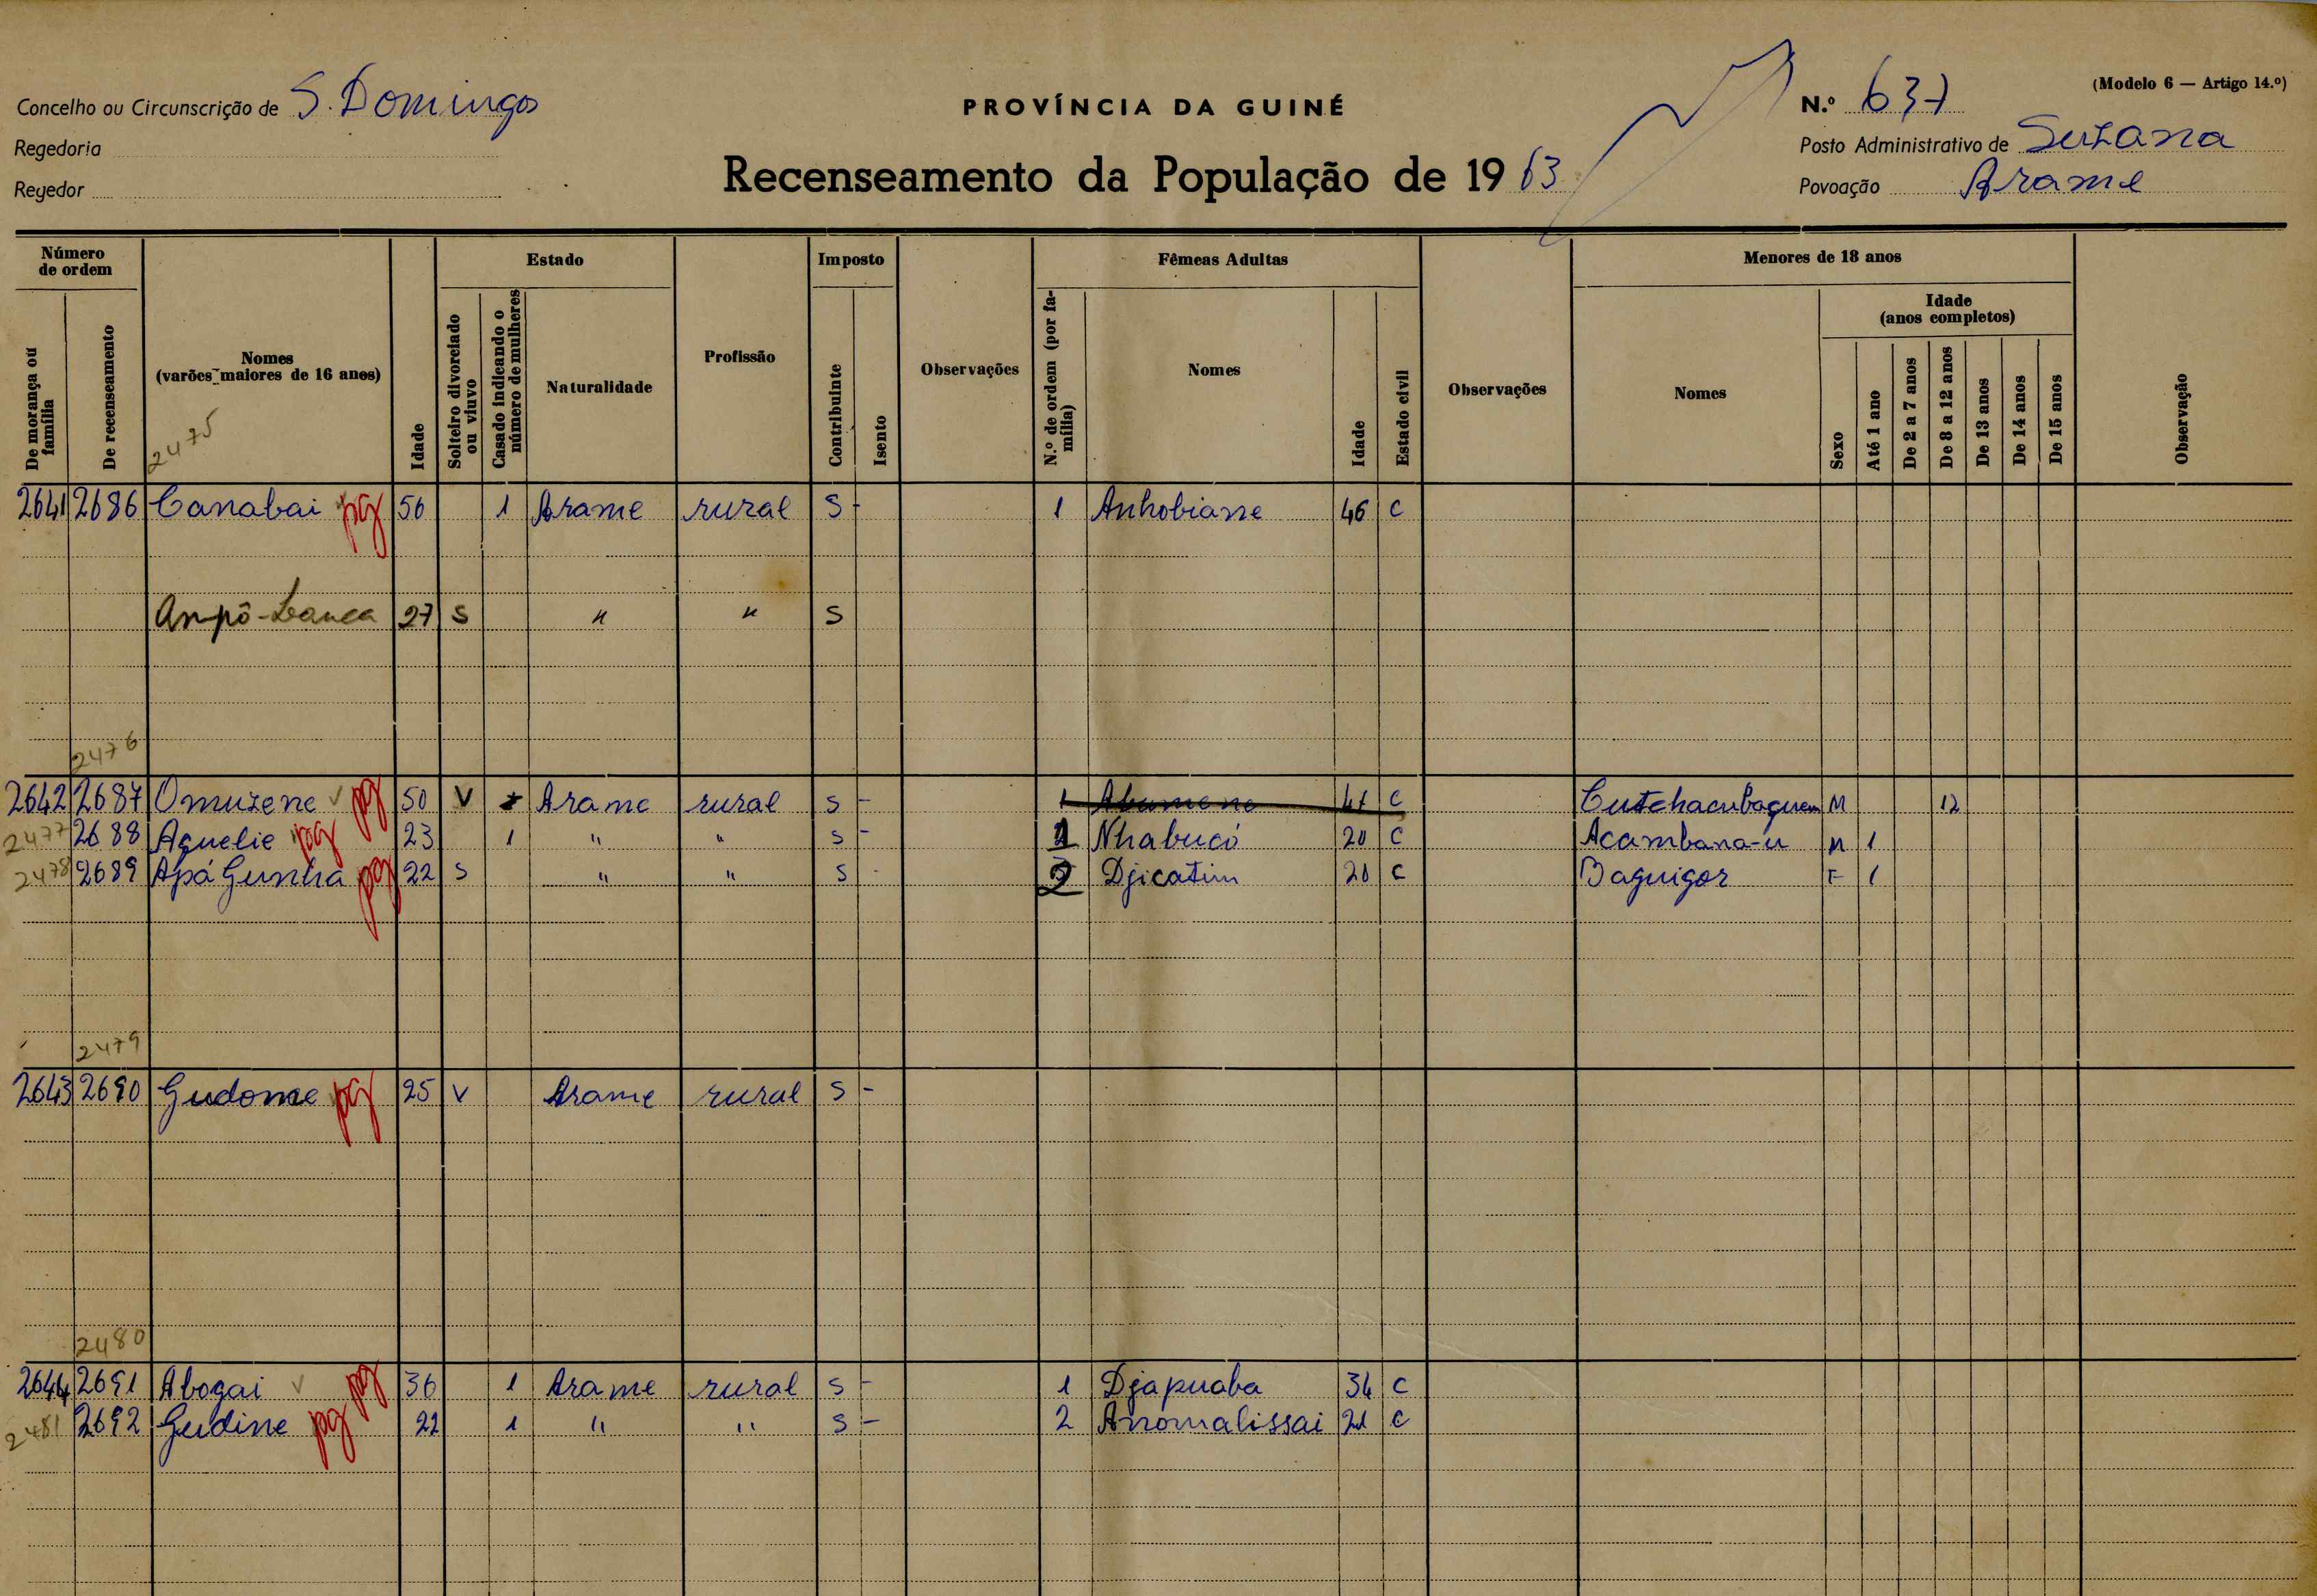 Concelho ou Circunscrição de S. Domingos
Regedoria
Regedor
PROVÍNCIA DA GUINÉ
Recenseamento da População de 19 63
(Modelo 6 — Artigo 14.º)
N.º 637
Posto Administrativo de Suzana
Povoação Arame
Número de ordem
De morança ou família
De recenseamento
Nomes
(varões maiores de 16 anos)
2475
Idade
Estado
Solteiro divorciado ou viuvo
Casado indicando o número de mulheres
Naturalidade
Profissão
Imposto
Contribuinte
Isento
Observações
Fêmeas Adultas
N.º de ordem (por família)
Nomes
Idade
Estado civil
Observações
Menores de 18 anos
Nomes
Sexo
Idade
(anos completos)
Até 1 ano
De 2 a 7 anos
De 8 a 12 anos
De 13 anos
De 14 anos
De 15 anos
Observação
2641 2686 Canabai pg 56 1 Arame rural S - 1 Anhobianne 46 C
Ampô-Banca 27 S " " S
2476
2642 2687 Omuzene V pg 50 V Arame rural S - 1 Abumene 47 C Cutchacubaquem M 12
2477 2688 Aquelie pg 23 1 " " S - 1 Nhabucó 20 C Acambana-u M 1
2478 2689 Apá Gunha pg 22 S " " S - 2 Djicatim 20 C Baguigor F 1
2479
2643 2690 Gudome pg 25 V Arame rural S -
2480
2644 2691 Abogai V pg 36 1 Arame rural S - 1 Djapuaba 34 C
2481 2692 Gudine pg 22 1 " " S - 2 Anomalissai 21 C